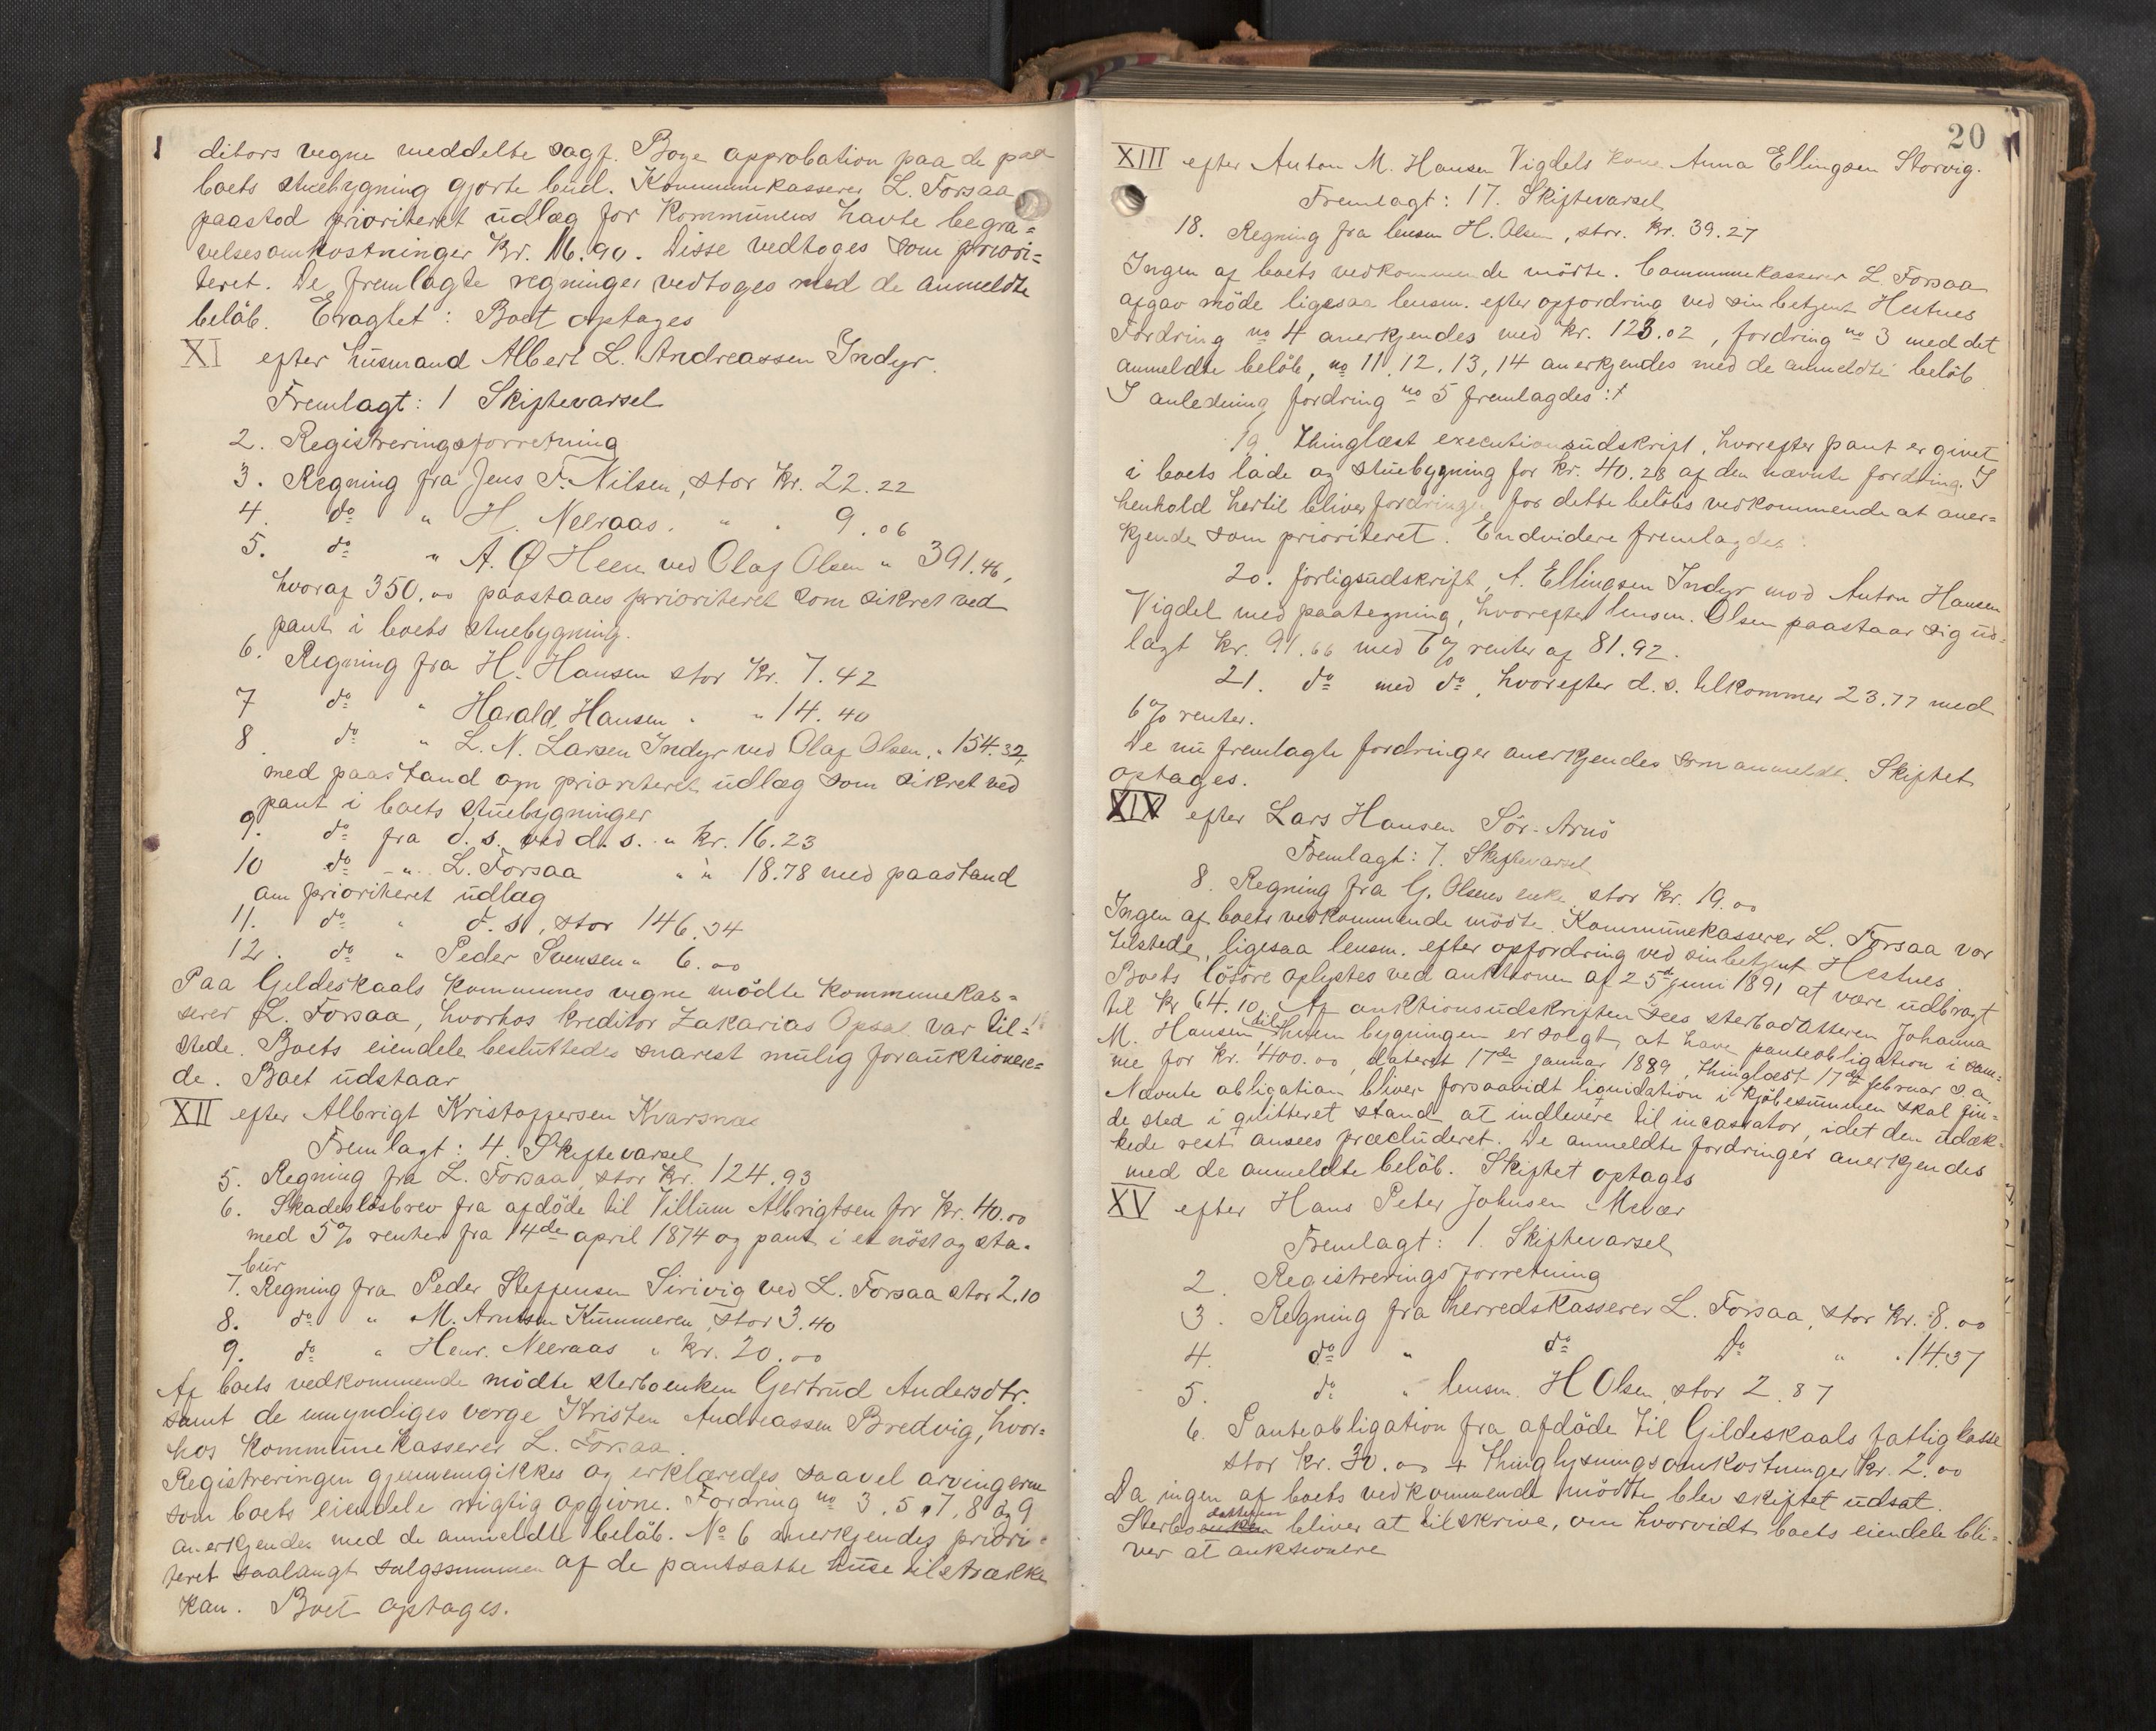 ditors vegne meddelte sagf. Boye approbation paa de paa
boets stuebygning gjorte bud. Kommunekasserer L. Forsaa
paastod prioriteret udlæg for Kommunens havte begra=
velsesomkostninger Kr. 16.90. Disse vedtoges som priori=
teret. De fremlagte regninger vedtoges med de anmeldte
beløb. Eragtet: Boet optages
XI efter husmand Albert L. Andreassen Indyr.
Fremlagt: 1 Skiftevarsel
2. Registreringsforretning
3. Regning fra Jens F. Nilsen, stor Kr. 22.22
4. do " H. Neeraas. " . 9.06
5. do " A. Ø Heen ved Olaf Olsen " 391.46,
hvoraf 350.00 paastaaes prioriteret som sikret ved
pant i boets stuebygning.
6. Regning fra H. Hansen stor Kr. 7.42
7 do " Harald Hansen " " 14.40
8. do " L. N. Larsen Indyr ved Olaf Olsen " 154.32,
med paastand om prioriteret udlæg som sikret ved
pant i boets stuebygninger
9. do fra d. s. ved d. s. " kr. 16.23
10 do " L. Forsaa " " 18.78 med paastand
om prioriteret udlæg
11. do " d. s., stor 146.34
12. do " Peder Svensen " 6.00
Paa Gildeskaals Kommunes vegne mødte kommunekas=
serer L. Forsaa, hvorhos kreditor Zakarias Opsal var til=
stede. Boets eiendele besluttedes snarest mulig forauktionere=
de. Boet udstaar
XII efter Albrigt Kristoffersen Kvarsnæs
Fremlagt: 4. Skiftevarsel
5. Regning fra L. Forsaa, stor Kr. 124.93
6. Skadesløsbrev fra afdøde til Villum Albrigtsen for Kr. 40.00
med 5% renter fra 14de april 1874 og pant i et nöst og sta=
bur
7. Regning fra Peder Steffensen Sirivig ved L. Forsaa stor 2.10
8. do " M. Arntsen Kummeren, stor 3.40
9. do " Henr. Neeraas " Kr. 20.00
Af boets vedkommende mødte sterboenken Gertrud Andersdtr.
samt de umyndiges verge Kristen Andreassen Bredvig, hvor=
hos Kommunekasserer L. Forsaa.
Registreringen gjennemgikkes og erklæredes saavel arvingerne
som boets eiendele rigtig opgivne. Fordring no 3, 5, 7, 8 og 9
anerkjendes med de anmeldte beløb. No 6 anerkjendes priori=
teret saalangt salgssummen af de pantsatte huse tilstrække
kan. Boet optages.
20
XIII efter Anton M. Hansen Vigdels kone Anna Ellingsen Storvig.
Fremlagt: 17. Skiftevarsel
18. Regning fra lensm H. Olsen, stor. Kr. 39.27
Ingen af boets vedkommende mödte. Communekasserer L. Forsaa
afgav möde ligesaa lensm. efter opfordring ved sin betjent Hestnes
Fordring no 4 anerkjendes med kr. 123.02, fordring no 3 med det
anmeldte belöb, no 11, 12, 13, 14 anerkjendes med de anmeldte belöb
I anledning fordring no 5 fremlagdes:
19. Thinglæst executionsudskrift, hvorefter pant er givet
i boets lade og stuebygning for Kr. 40.28 af den nævnte fordring. I
henhold hertil bliver fordringen for dette beløbs vedkommende at aner=
kjende som prioriteret. Endvidere fremlagdes:
20. forligsudskrift, A. Ellingsen Indyr mod Anton Hansen
Vigdel med paategning, hvorefter lensm. Olsen paastaar sig ud=
lagt Kr. 91.66 med 6% renter af 81.92.
21. do med do, hvorefter d. s. tilkommer 23.77 med
6% renter.
De nu fremlagte fordringer anerkjendes som anmeldt. Skiftet
optages.
XIV efter Lars Hansen Sör-Arnö
Fremlagt: 7. Skiftevarsel
8. Regning fra G. Olsens enke stor Kr. 19.00
Ingen af boets vedkommende mödte. Kommunekasserer L. Forsaa var
tilstede, ligesaa lensm. efter opfordring ved sin betjent Hestnes
Boets lösöre oplystes ved auktionen af 25de juni 1891 at være udbragt
til Kr 64.10. Af auktionsudskriften sees sterbodatteren Johanna
M. Hansen til hvem bygningen er solgt, at have panteobligation i sam=
me for Kr. 400.00, dateret 17de januar 1889, thinglæst 17de februar s. a.
Nævnte obligation bliver forsaavidt liquidation i kjöbesummen skal fin=
de sted i qvitteret stand at indlevere til incassator, idet den udæk=
kede rest ansees præcluderet. De anmeldte fordringer anerkjendes
med de anmeldte belöb. Skiftet optages
XV efter Hans Peter Johnsen Mevær
Fremlagt: 1. Skiftevarsel
2. Registreringsforretning
3. Regning fra herredskasserer L. Forsaa, stor Kr. 8.00
4. do " do do " . 14.37
5. do " lensm. H Olsen, stor 2.87
6. Panteobligation fra afdöde til Gildeskaals fattigkasse
stor Kr. 30.00 + thinglysningsomkostninger Kr. 2.00
Da ingen af boets vedkommende mödte blev skiftet udsat.
datteren
Sterboenken bliver at tilskrive, om hvorvidt boets eiendele bli=
ver at auktionere